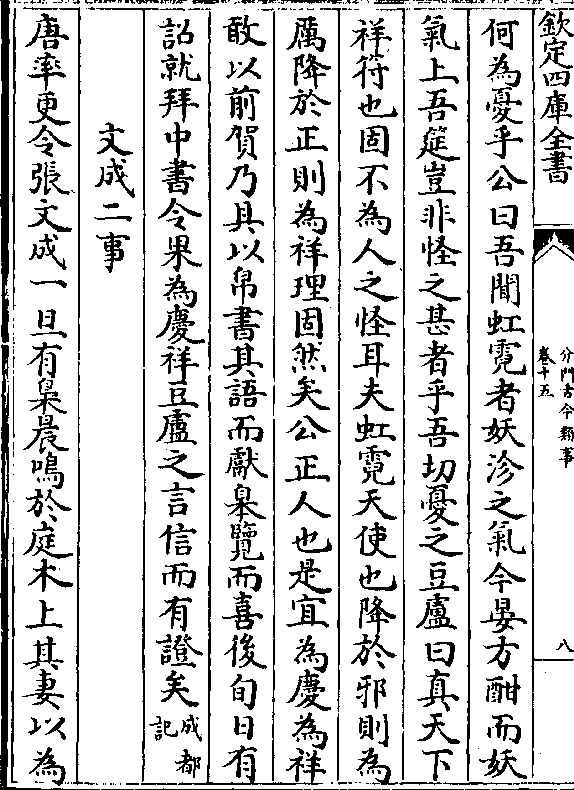 欽定四庫全書
分門古今類事
卷十五
八
何為憂乎公曰吾聞虹霓者妖沴之氣今晏方酣而妖
氣上吾筵豈非怪之甚者乎吾切憂之豆盧曰真天下
祥符也固不為人之怪耳夫虹霓天使也降於邪則為
厲降於正則為祥理固然矣公正人也是宜為慶為祥
敢以前賀乃具以帛書其語而獻皋覽而喜後旬日有
詔就拜中書令果為慶祥豆盧之言信而有證矣成都
記
文成二事
唐率更令張文成一旦有梟晨鳴於庭木上其妻以為